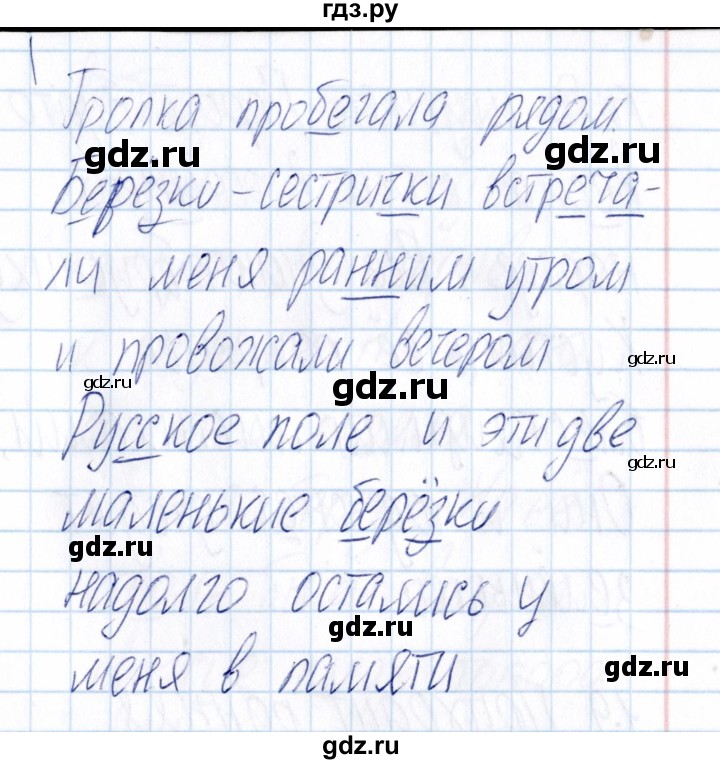 гдз.ру
1
Тропка пробегала рядом.
gdz.ru
gdz.ru
Березки-сестрички встреча-
ли меня ранним утром
gdz.ru
и провожали вечером
gdz.ru
gdz.ru
Русское поле и эти две
gdz.ru
маленькие берёзки
gdz.ru
надолго остались у
gdz.ru
gdz.ru
меня в памяти
gdz.ru